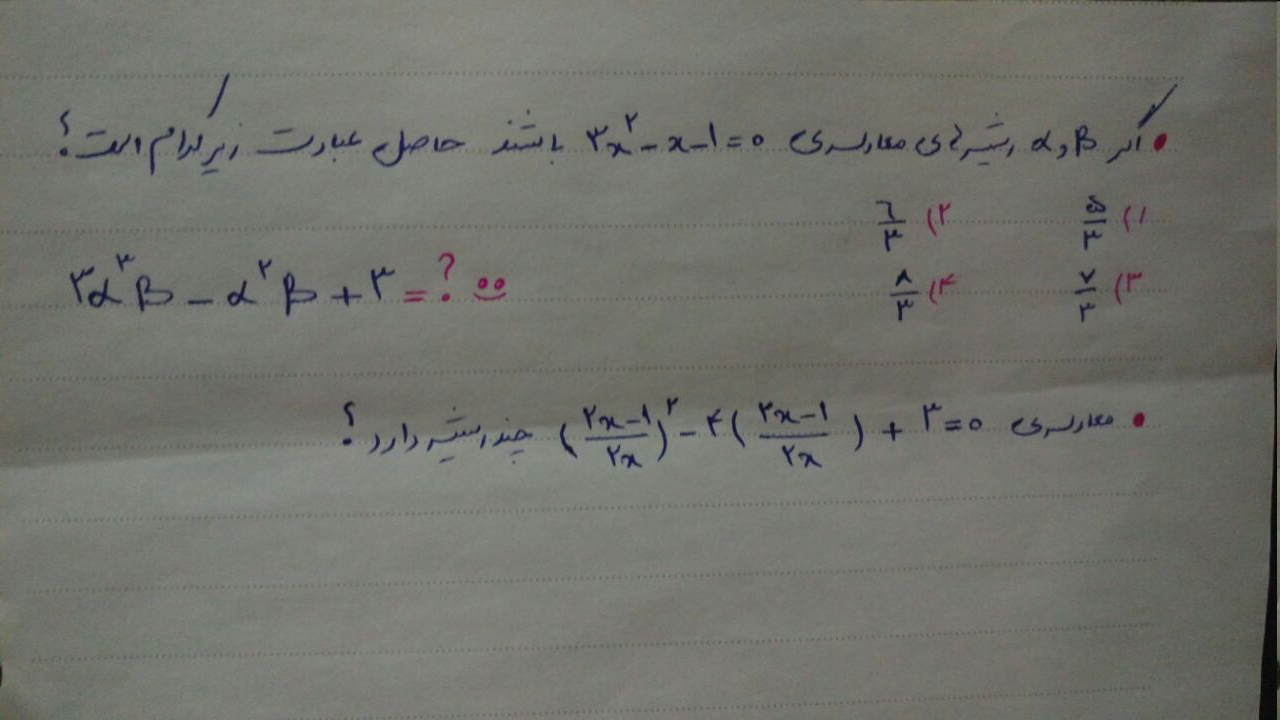 • اگر α و β ریشه‌های معادله‌ی ۳x²-x-1=0 باشند حاصل عبارت زیر کدام است؟
۱) ۵/۳ ۲) ۶/۳
۳) ۷/۳ ۴) ۸/۳
۳α³β - α²β + ۳ = ?
• معادله‌ی (۲x-1/۲x)² - ۴(۲x-1/۲x) + ۳=0 چند ریشه دارد؟